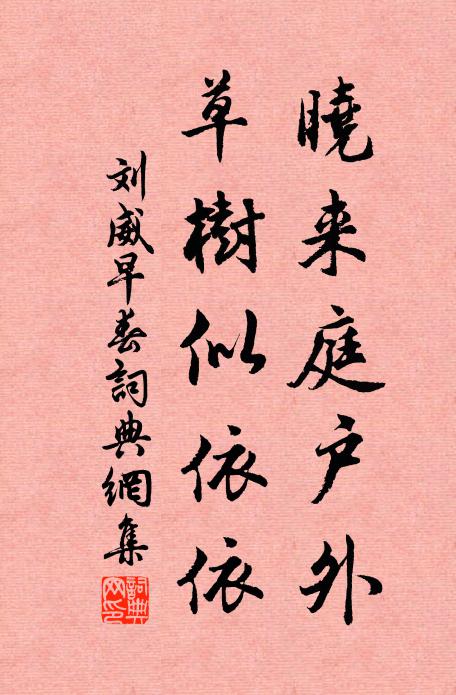 曉来庭户外
草樹似依依
刘威早春詞典網集
詞典网印